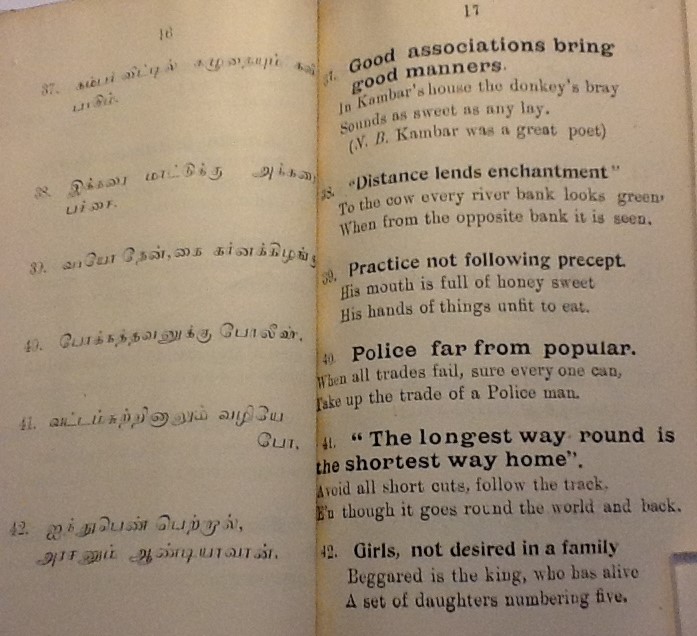 16
37. கம்பர் வீட்டில் கழுதையும் கவி
பாகும்.
38. இக்கரை மாட்டுக்கு அக்கரை
பச்சை.
39. வாயோ தேன், கை கர்னக்கிழங்கு
40. போக்கத்தவனுக்கு போலீஸ்.
41. வட்டம்சுற்றினாலும் வழியே
போ.
42. ஐந்துபெண் பெற்றால்,
அரசனும் ஆண்டியாவான்.
17
37. Good associations bring
good manners.
In Kambar's house the donkey's bray
Sounds as sweet as any lay.
(N. B. Kambar was a great poet)
38. "Distance lends enchantment"
To the cow every river bank looks green,
When from the opposite bank it is seen.
39. Practice not following precept.
His mouth is full of honey sweet
His hands of things unfit to eat.
40. Police far from popular.
When all trades fail, sure every one can,
Take up the trade of a Police man.
41. "The longest way round is
the shortest way home".
Avoid all short cuts, follow the track,
E'n though it goes round the world and back.
42. Girls, not desired in a family
Beggared is the king, who has alive
A set of daughters numbering five.